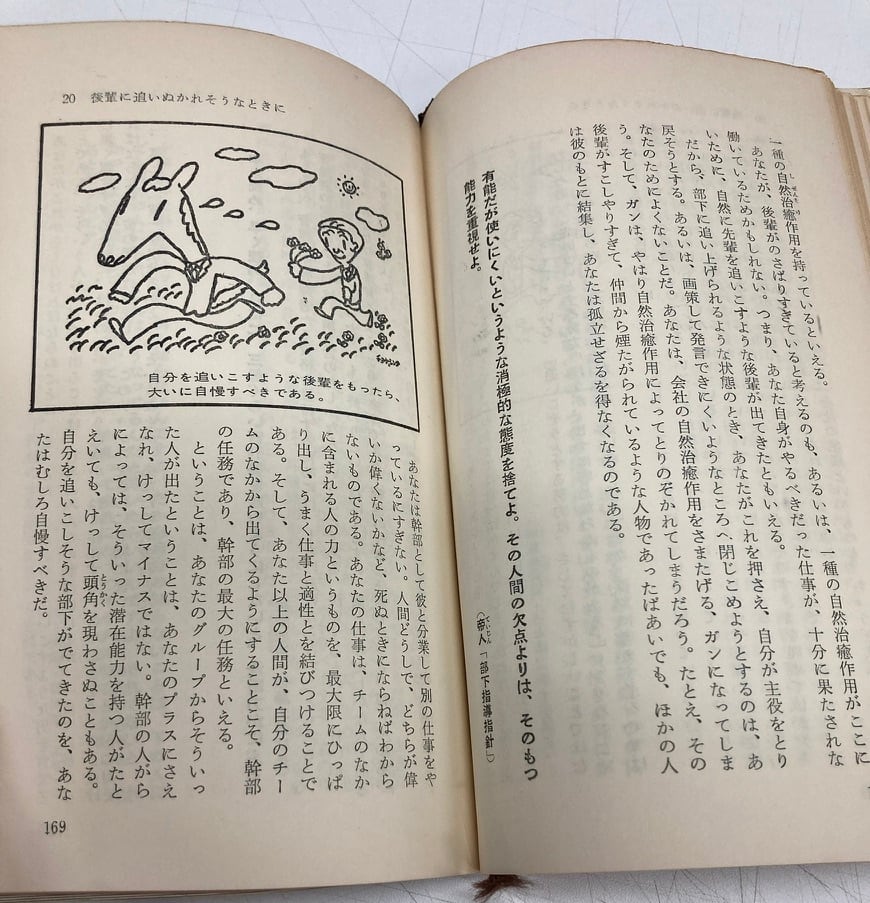 一種の自然治癒作用を持っているといえる。
あなたが、後輩がのさばりすぎていると考えるのも、あるいは、一種の自然治癒作用がここに
働いているためかもしれない。つまり、あなた自身がやるべきだった仕事が、十分に果たされな
いために、自然に先輩を追いこすような後輩が出てきたともいえる。
だから、部下に追い上げられるような状態のとき、あなたがこれを押さえ、自分が主役をとり
戻そうとする。あるいは、画策して発言できにくいようなところへ閉じこめようとするのは、あ
なたのためによくないことだ。あなたは、会社の自然治癒作用をさまたげる、ガンになってしま
う。そして、ガンは、やはり自然治癒作用によってとりのぞかれてしまうだろう。たとえ、その
後輩がすこしやりすぎて、仲間から煙たがられているような人物であったばあいでも、ほかの人
は彼のもとに結集し、あなたは孤立せざるを得なくなるのである。
有能だが使いにくいというような消極的な態度を捨てよ。その人間の欠点よりは、そのもつ
能力を重視せよ。
（帝人「部下指導指針」）
20 後輩に追いぬかれそうなときに
自分を追いこすような後輩をもったら、
大いに自慢すべきである。
あなたは幹部として彼と分業して別の仕事をや
っているにすぎない。人間どうしで、どちらが偉
いか偉くないかなど、死ぬときにならねばわから
ないものである。あなたの仕事は、チームのなか
に含まれる人の力というものを、最大限にひっぱ
り出し、うまく仕事と適性とを結びつけることで
ある。そして、あなた以上の人間が、自分のチー
ムのなかから出てくるようにすることこそ、幹部
の任務であり、幹部の最大の任務といえる。
ということは、あなたのグループからそういっ
た人が出たということは、あなたのプラスにさえ
なれ、けっしてマイナスではない。幹部の人がら
によっては、そういった潜在能力を持つ人がたと
えいても、けっして頭角を現わさぬこともある。
自分を追いこしそうな部下がでてきたのを、あな
たはむしろ自慢すべきだ。
169